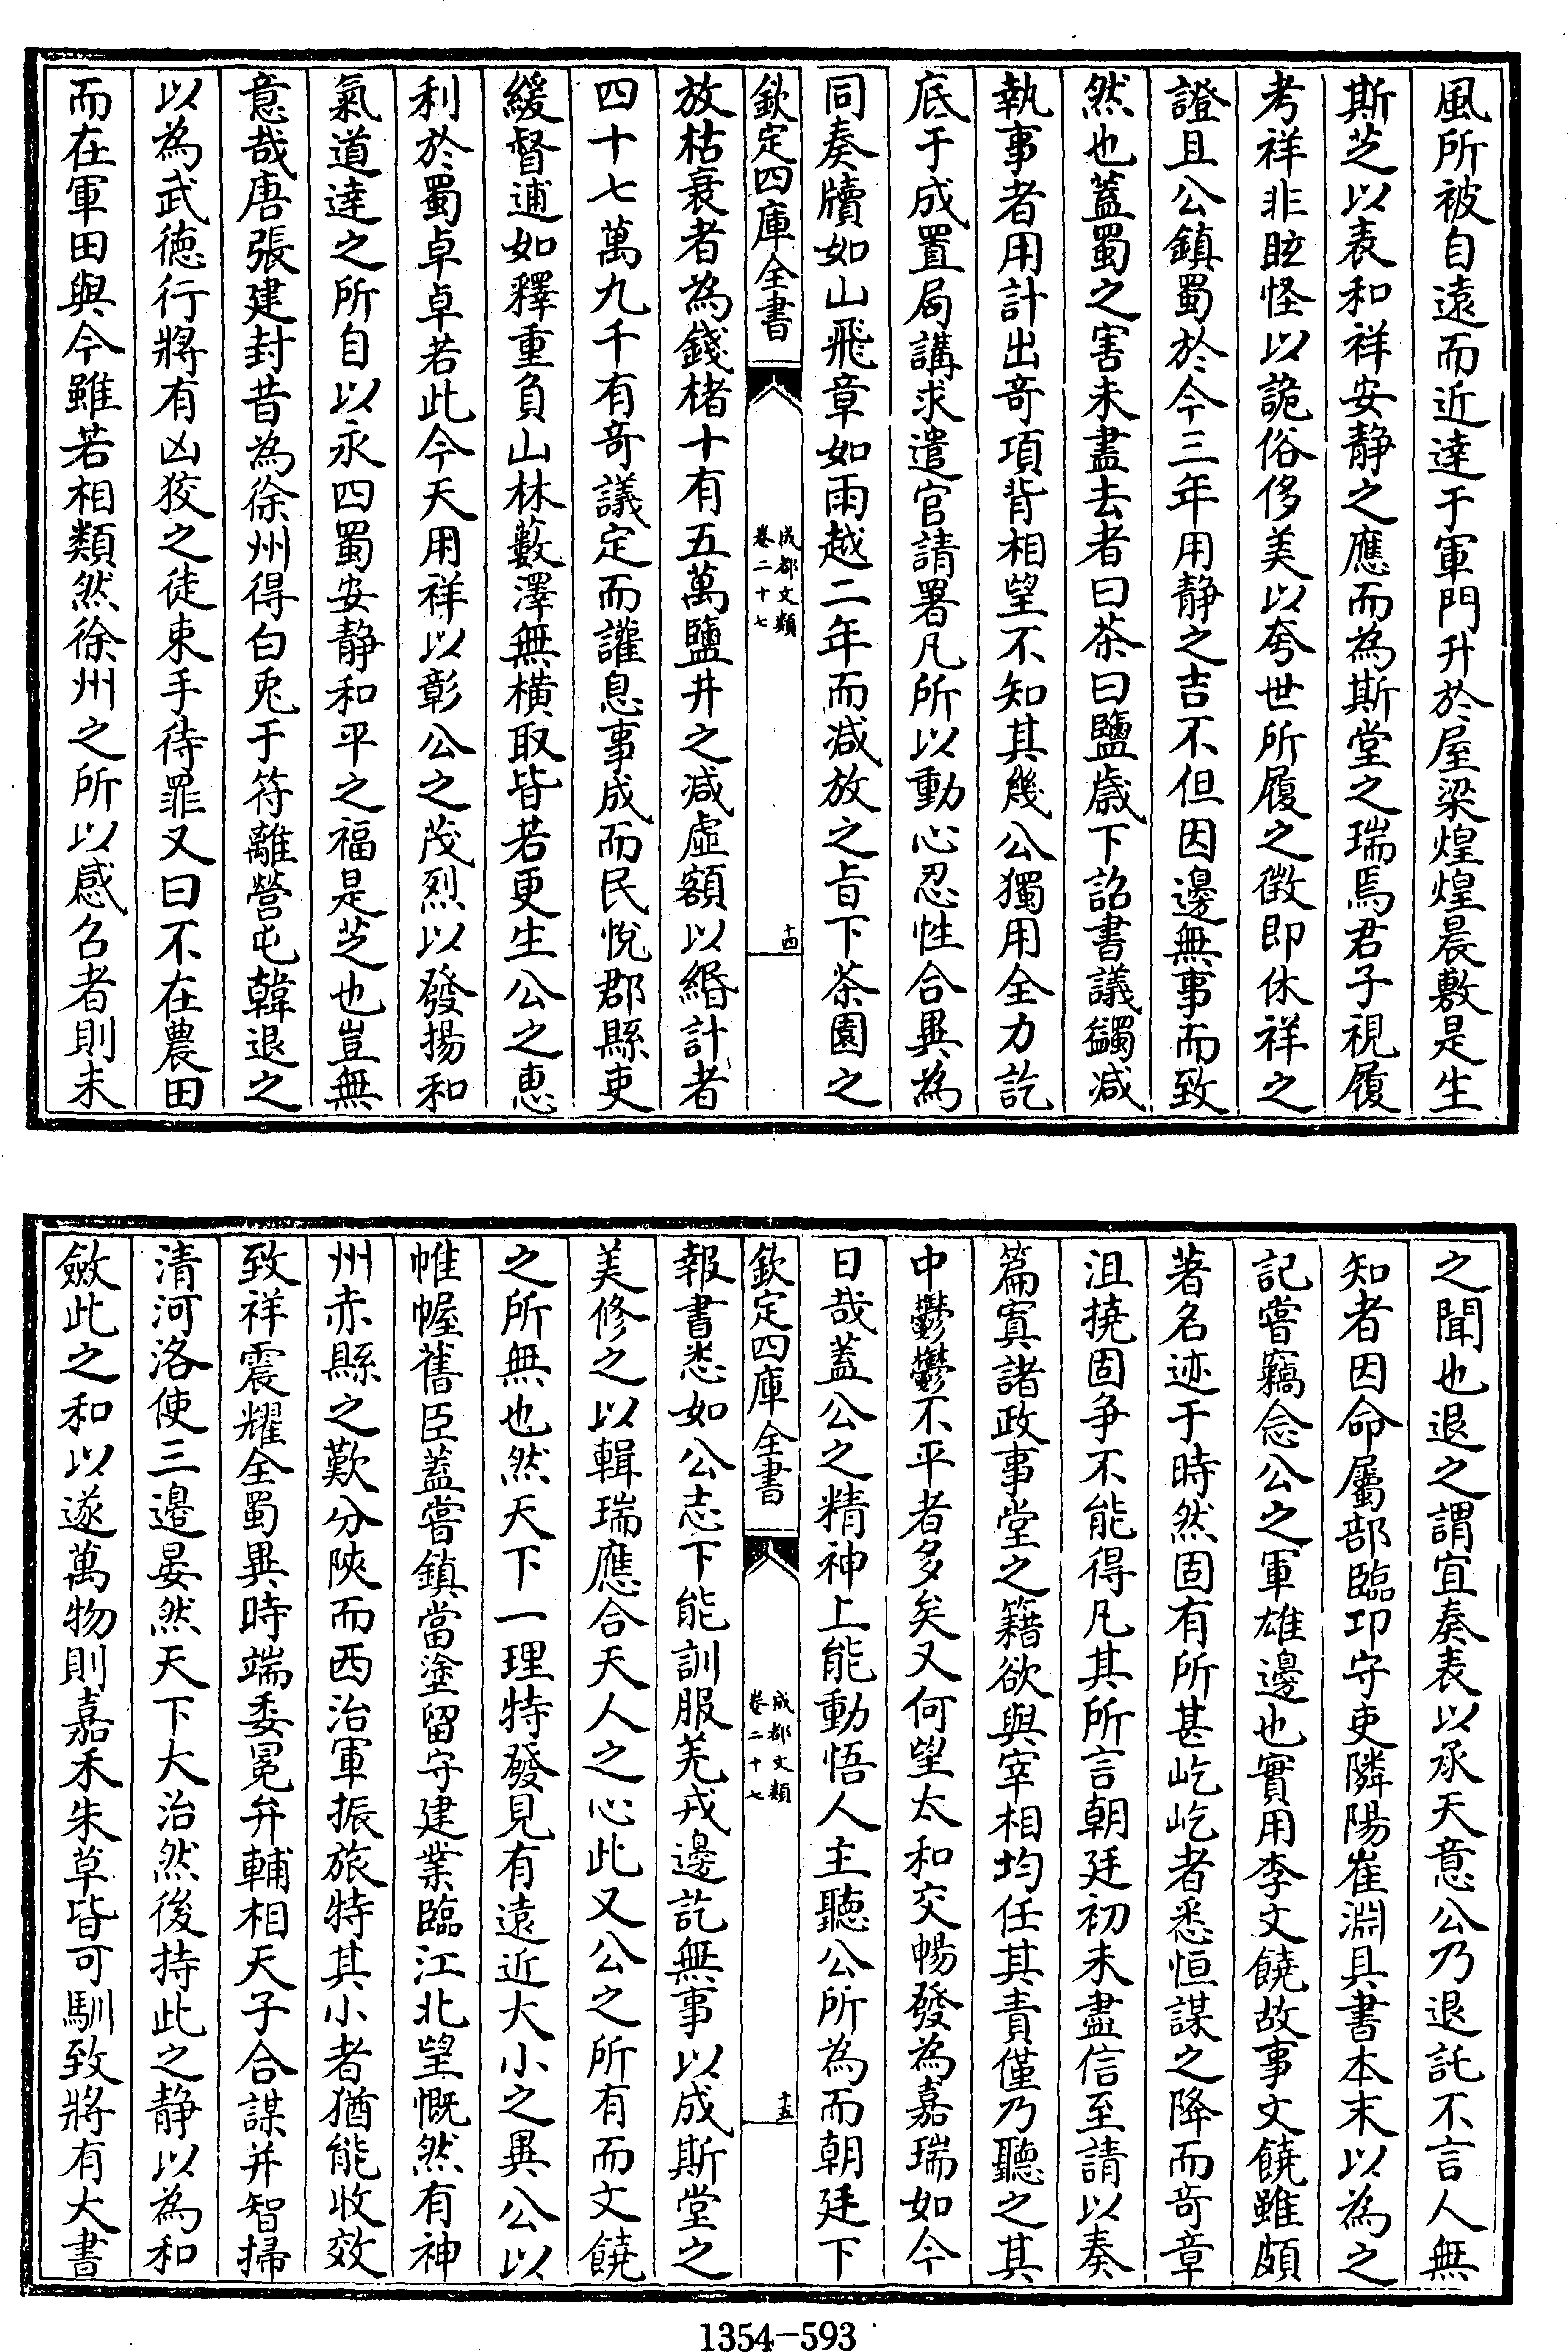 風所被自遠而近達于軍門升於屋梁煌煌晨敷是生
斯芝以表和祥安静之應而為斯堂之瑞焉君子視履
考祥非眩怪以詭俗侈美以夸世所履之徵即休祥之
證且公鎮蜀於今三年用静之吉不但因邊無事而致
然也蓋蜀之害未盡去者曰茶曰鹽歲下詔書議蠲减
執事者用計出奇項背相望不知其幾公獨用全力訖
底于成置局講求遣官請署凡所以動心忍性合異為
同奏牘如山飛章如雨越二年而减放之旨下茶園之
欽定四庫全書
成都文類
卷二十七
十四
放枯衰者為錢楮十有五萬鹽井之减虛額以緡計者
四十七萬九千有奇議定而讙息事成而民悅郡縣吏
緩督逋如釋重負山林藪澤無横取皆若更生公之恵
利於蜀卓卓若此今天用祥以彰公之茂烈以發揚和
氣道達之所自以永四蜀安静和平之福是芝也豈無
意哉唐張建封昔為徐州得白兎于符離營屯韓退之
以為武德行將有凶狡之徒束手待罪又曰不在農田
而在軍田與今雖若相類然徐州之所以感召者則未
之聞也退之謂宜奏表以承天意公乃退託不言人無
知者因命屬部臨卭守吏隣陽崔淵具書本末以為之
記嘗竊念公之軍雄邊也實用李文饒故事文饒雖頗
著名迹于時然固有所甚屹屹者悉恒謀之降而奇章
沮撓固争不能得凡其所言朝廷初未盡信至請以奏
篇寘諸政事堂之籍欲與宰相均任其責僅乃聽之其
中鬱鬱不平者多矣又何望太和交暢發為嘉瑞如今
日哉蓋公之精神上能動悟人主聽公所為而朝廷下
欽定四庫全書
成都文類
卷二十七
十五
報書悉如公志下能訓服羌戎邊訖無事以成斯堂之
美修之以輯瑞應合天人之心此又公之所有而文饒
之所無也然天下一理特發見有遠近大小之異公以
帷幄舊臣蓋嘗鎮當塗留守建業臨江北望慨然有神
州赤縣之歎分陝而西治軍振旅特其小者猶能收效
致祥震耀全蜀異時端委冕弁輔相天子合謀并智掃
清河洛使三邉晏然天下大治然後持此之静以為和
斂此之和以遂萬物則嘉禾朱草皆可馴致將有大書
1354—593